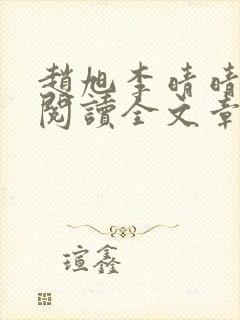 趙旭李晴晴
閱讀全文章
瑄鑫